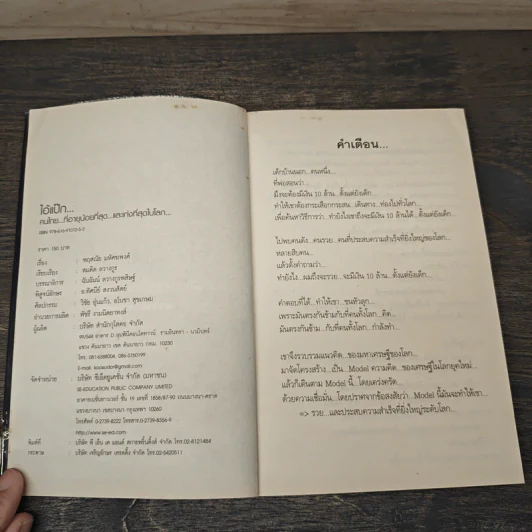 ไอ้แป๊ก...
คนไทย...ที่อายุน้อยที่สุด...และเก่งที่สุดในโลก...
ราคา 180 บาท
เรื่อง : พฤศนัย มหัคฆพงศ์
เรียบเรียง : สมคิด
บรรณาธิการ : ฉันฉัมน์
พิสูจน์อักษร :
ศิลปกรรม : วิชัย
อำนวยการผลิต : พัชรี งามนิตยาพงษ์
ผู้ผลิต : บริษัท สำนักกูโสดอ จำกัด
โทร.
E-mail :
จัดจำหน่าย : บริษัท ซีเอ็ดยูเคชั่น จำกัด (มหาชน)
SE-EDUCATION PUBLIC COMPANY LIMITED
อาคารเนชั่นทาวเวอร์ ชั้น 19 เลขที่ 1858/87-90 ถนนบางนา-ตราด
แขวงบางนา เขตบางนา กรุงเทพฯ 10260
โทรศัพท์ 0-2739-8222 โทรสาร 0-2739-8356-9
http://www.se-ed.com
พิมพ์ที่ : บริษัท พี เอ็น เค แอนด์ สกายพริ้นติ้งส์ จำกัด โทร.02-8121484
บริษัท เจริญอักษร เทรดดิ้ง จำกัด โทร.02-5420511
คำเตือน...
เด็กบ้านนอก...คนหนึ่ง...
ที่พ่อสอนว่า...
มึงจะต้องมีเงิน 10 ล้าน...ตั้งแต่ยังเด็ก...
ทำให้เขาต้องกระเสือกกระสน...เดินทาง...ท่องไปทั่วโลก...
เพื่อค้นหาวิธีการว่า...ทำยังไงเขาถึงจะมีเงิน 10 ล้านได้...ตั้งแต่ยังเด็ก...
ไปพบคนดัง...คนรวย...คนที่ประสบความสำเร็จที่ยิ่งใหญ่ของโลก...
หลายสิบคน...
แล้วตั้งคำถามว่า...
ทำยังไง...ผมถึงจะรวย...จะมีเงิน 10 ล้าน...ตั้งแต่ยังเด็ก...
คำตอบที่ได้...ทำให้เขา...ขนหัวลุก...
เพราะมันตรงกันข้ามกับที่คนทั้งโลก...คิด...
มันตรงกันข้าม...กับที่คนทั้งโลก...กำลังทำ...
เขาจึงรวบรวมแนวคิด...ของมหาเศรษฐีของโลก...
มาจัดโครงสร้าง...เป็น...Model ความคิด...ของเศรษฐีในโลกยุคใหม่...
แล้วก็เดินตาม Model นี้...โดยเคร่งครัด...
ด้วยความเชื่อมั่น...โดยปราศจากข้อสงสัยว่า...Model นี้มันจะทำให้เขา...
=> รวย...และประสบความสำเร็จที่ยิ่งใหญ่ระดับโลก...